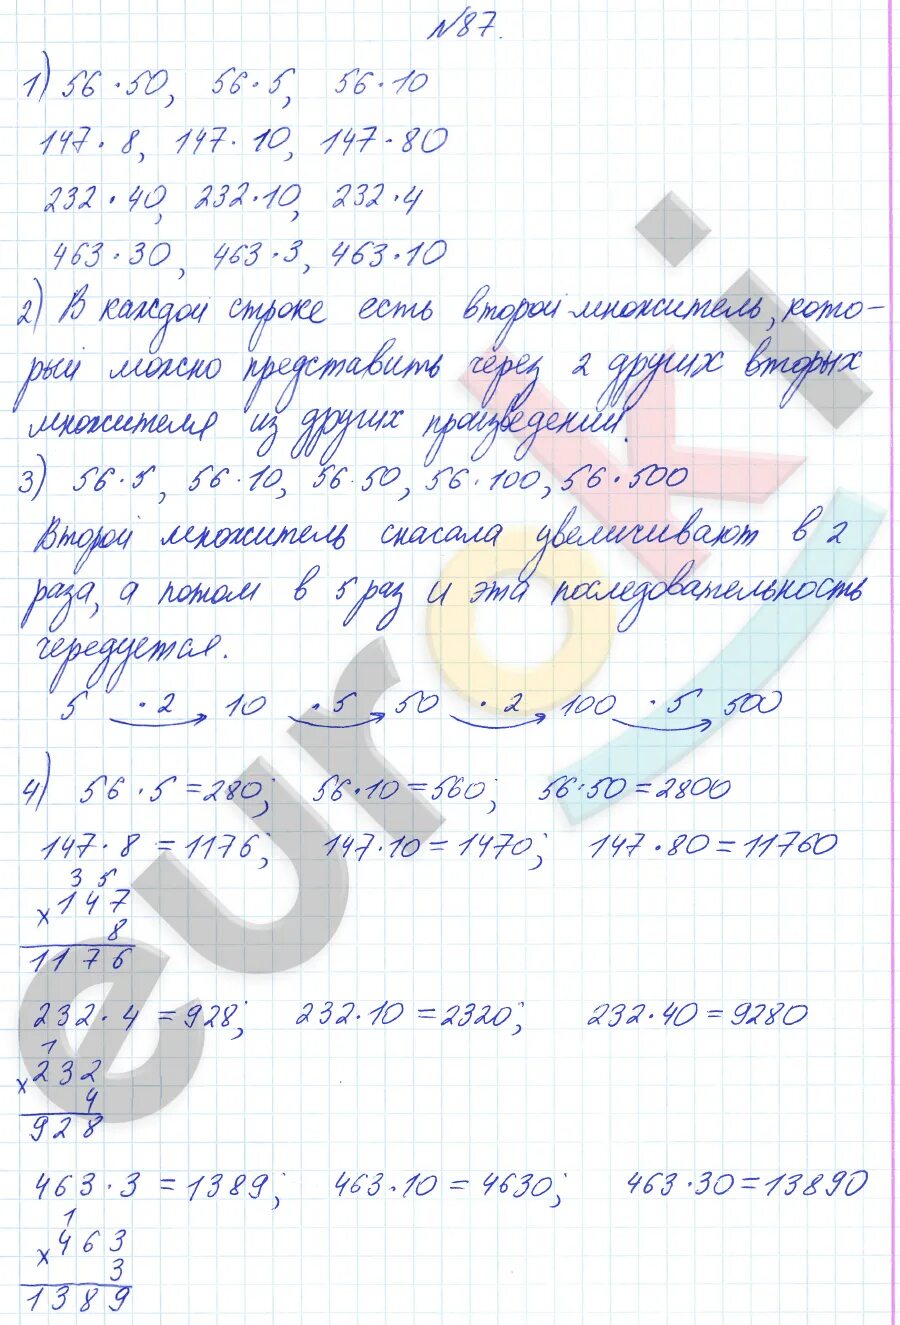 №87.
1) 56·50, 56·5, 56·10
147·8, 147·10, 147·80
232·40, 232·10, 232·4
463·30, 463·3, 463·10
2) В каждой строке есть второй множитель, кото-
рый можно представить через 2 других вторых
множителя из других произведений.
3) 56·5, 56·10, 56·50, 56·100, 56·500
Второй множитель сначала увеличивают в 2
раза, а потом в 5 раз и эта последовательность
чередуется.
5 ·2 10 ·5 50 ·2 100 ·5 500
4) 56·5=280; 56·10=560; 56·50=2800
147·8=1176; 147·10=1470; 147·80=11760
3 5
×147
8
1176
232·4=928; 232·10=2320; 232·40=9280
1
×232
4
928
463·3=1389; 463·10=4630; 463·30=13890
1
×463
3
1389
euroki